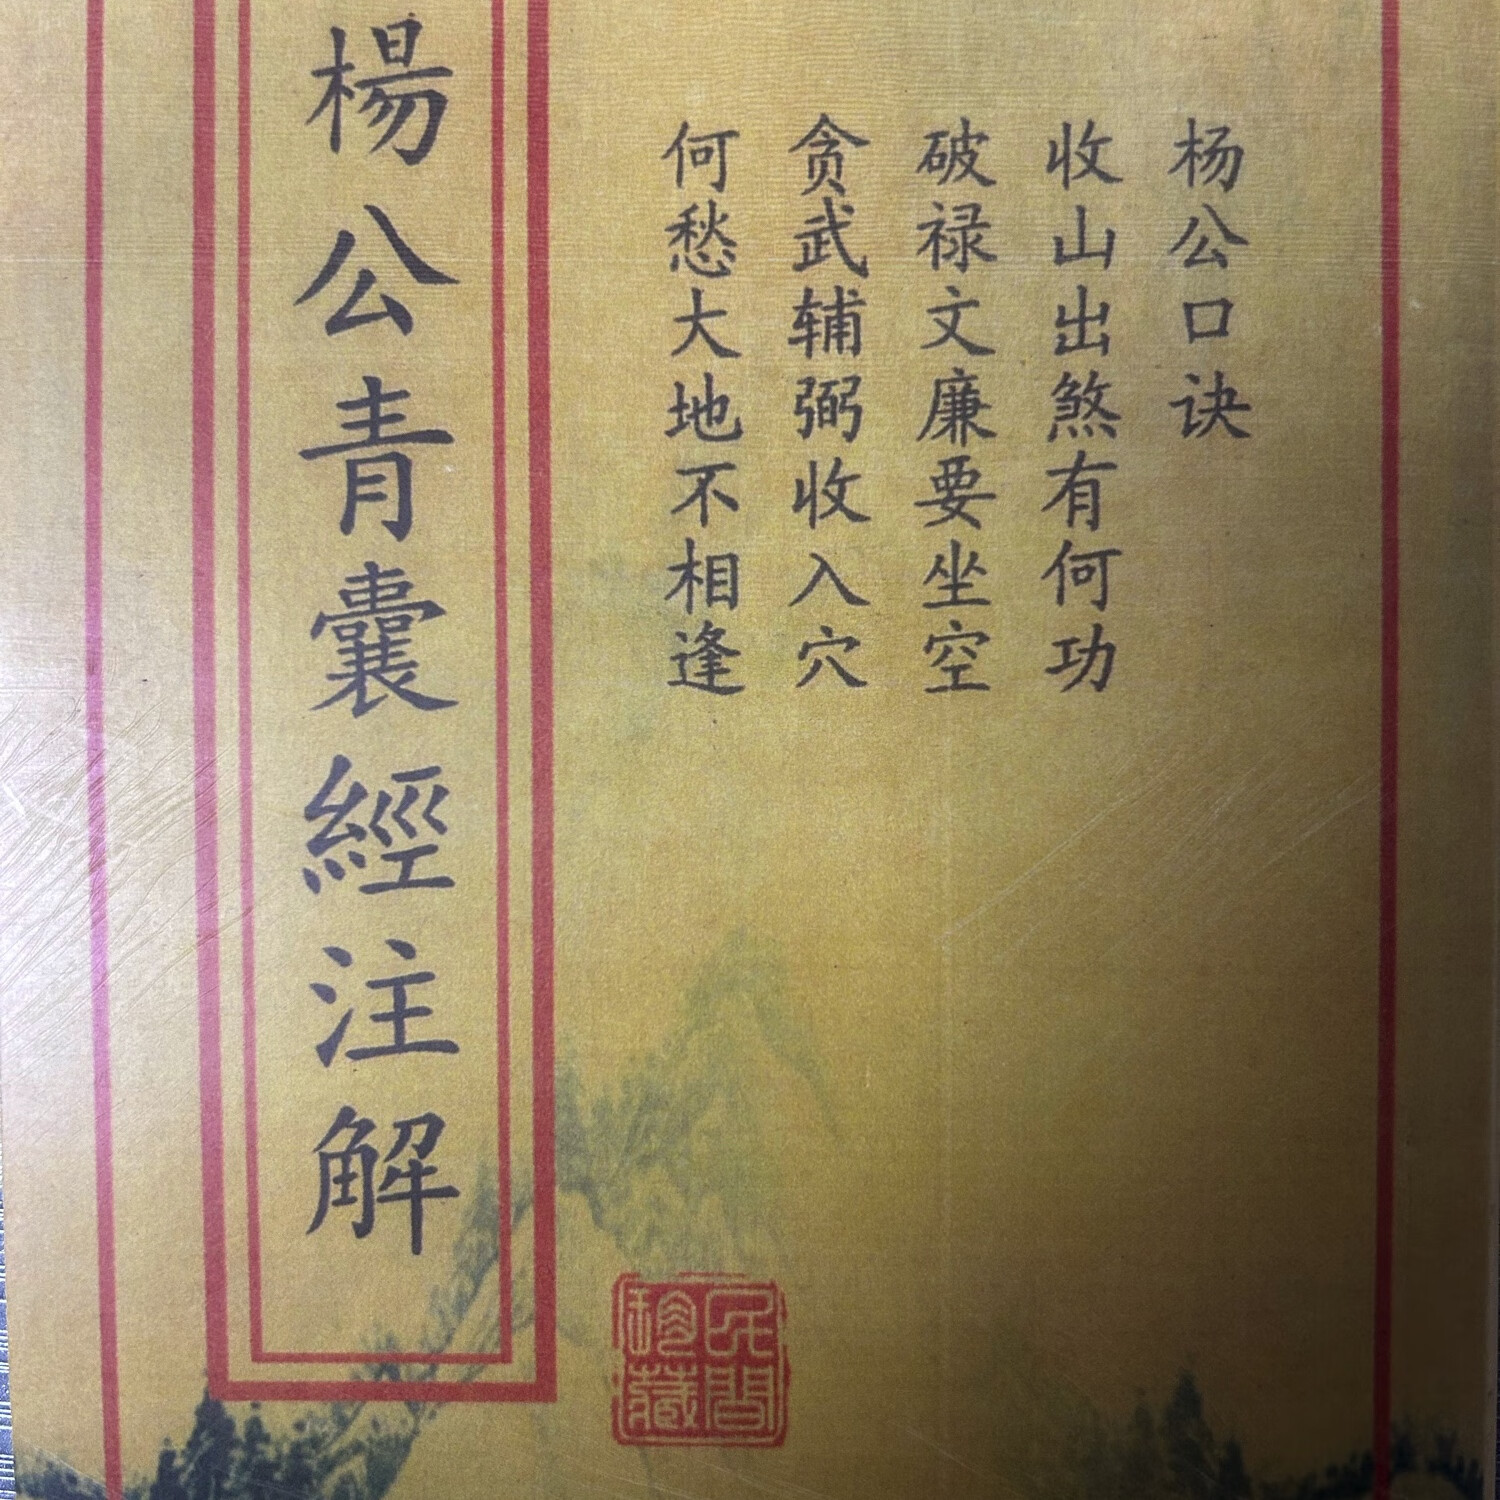 杨公口诀
收山出煞有何功
破禄文廉要坐空
贪武辅弼收入穴
何愁大地不相逢
楊公青囊經注解
民間
珍藏